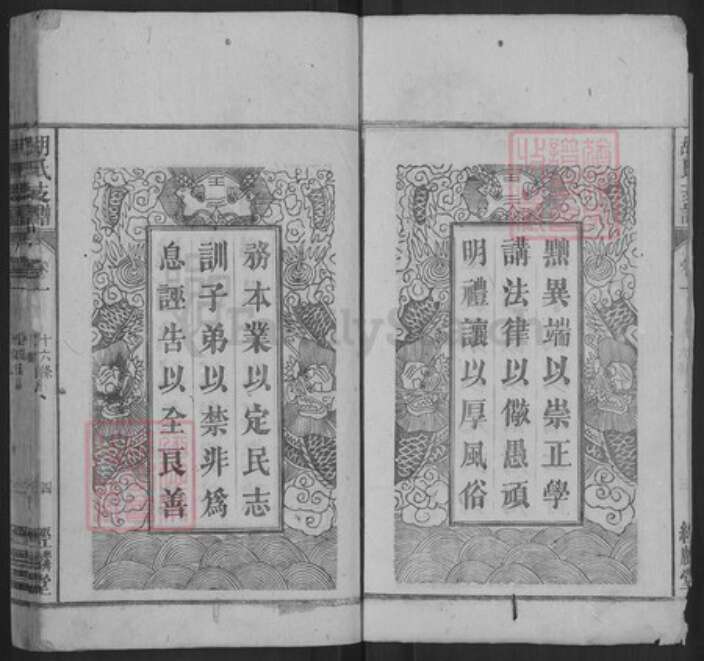 黜異端以崇正學
講法律以儆愚頑
明禮讓以厚風俗
務本業以定民志
訓子弟以禁非為
息誣告以全良善
胡氏支譜
卷一
十六條
四